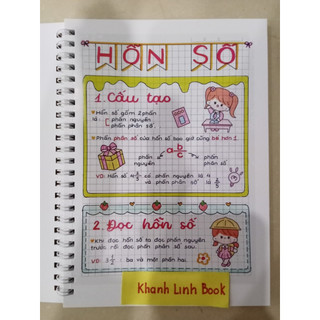 HỖN SỐ
1. Cấu tạo
Hỗn số gồm 2 phần
là phần nguyên
phần phân số
Phần phân số của hỗn số bao giờ cũng bé hơn 1.
a b/c
phần nguyên
phần phân số
VD: Hỗn số có phần nguyên là
và phần phân số là
2. Đọc hỗn số
Khi đọc hỗn số ta đọc phần nguyên
trước rồi đọc phần phân số sau.
VD: 3 1/2 : ba và một phần hai.
Khanh Linh Book